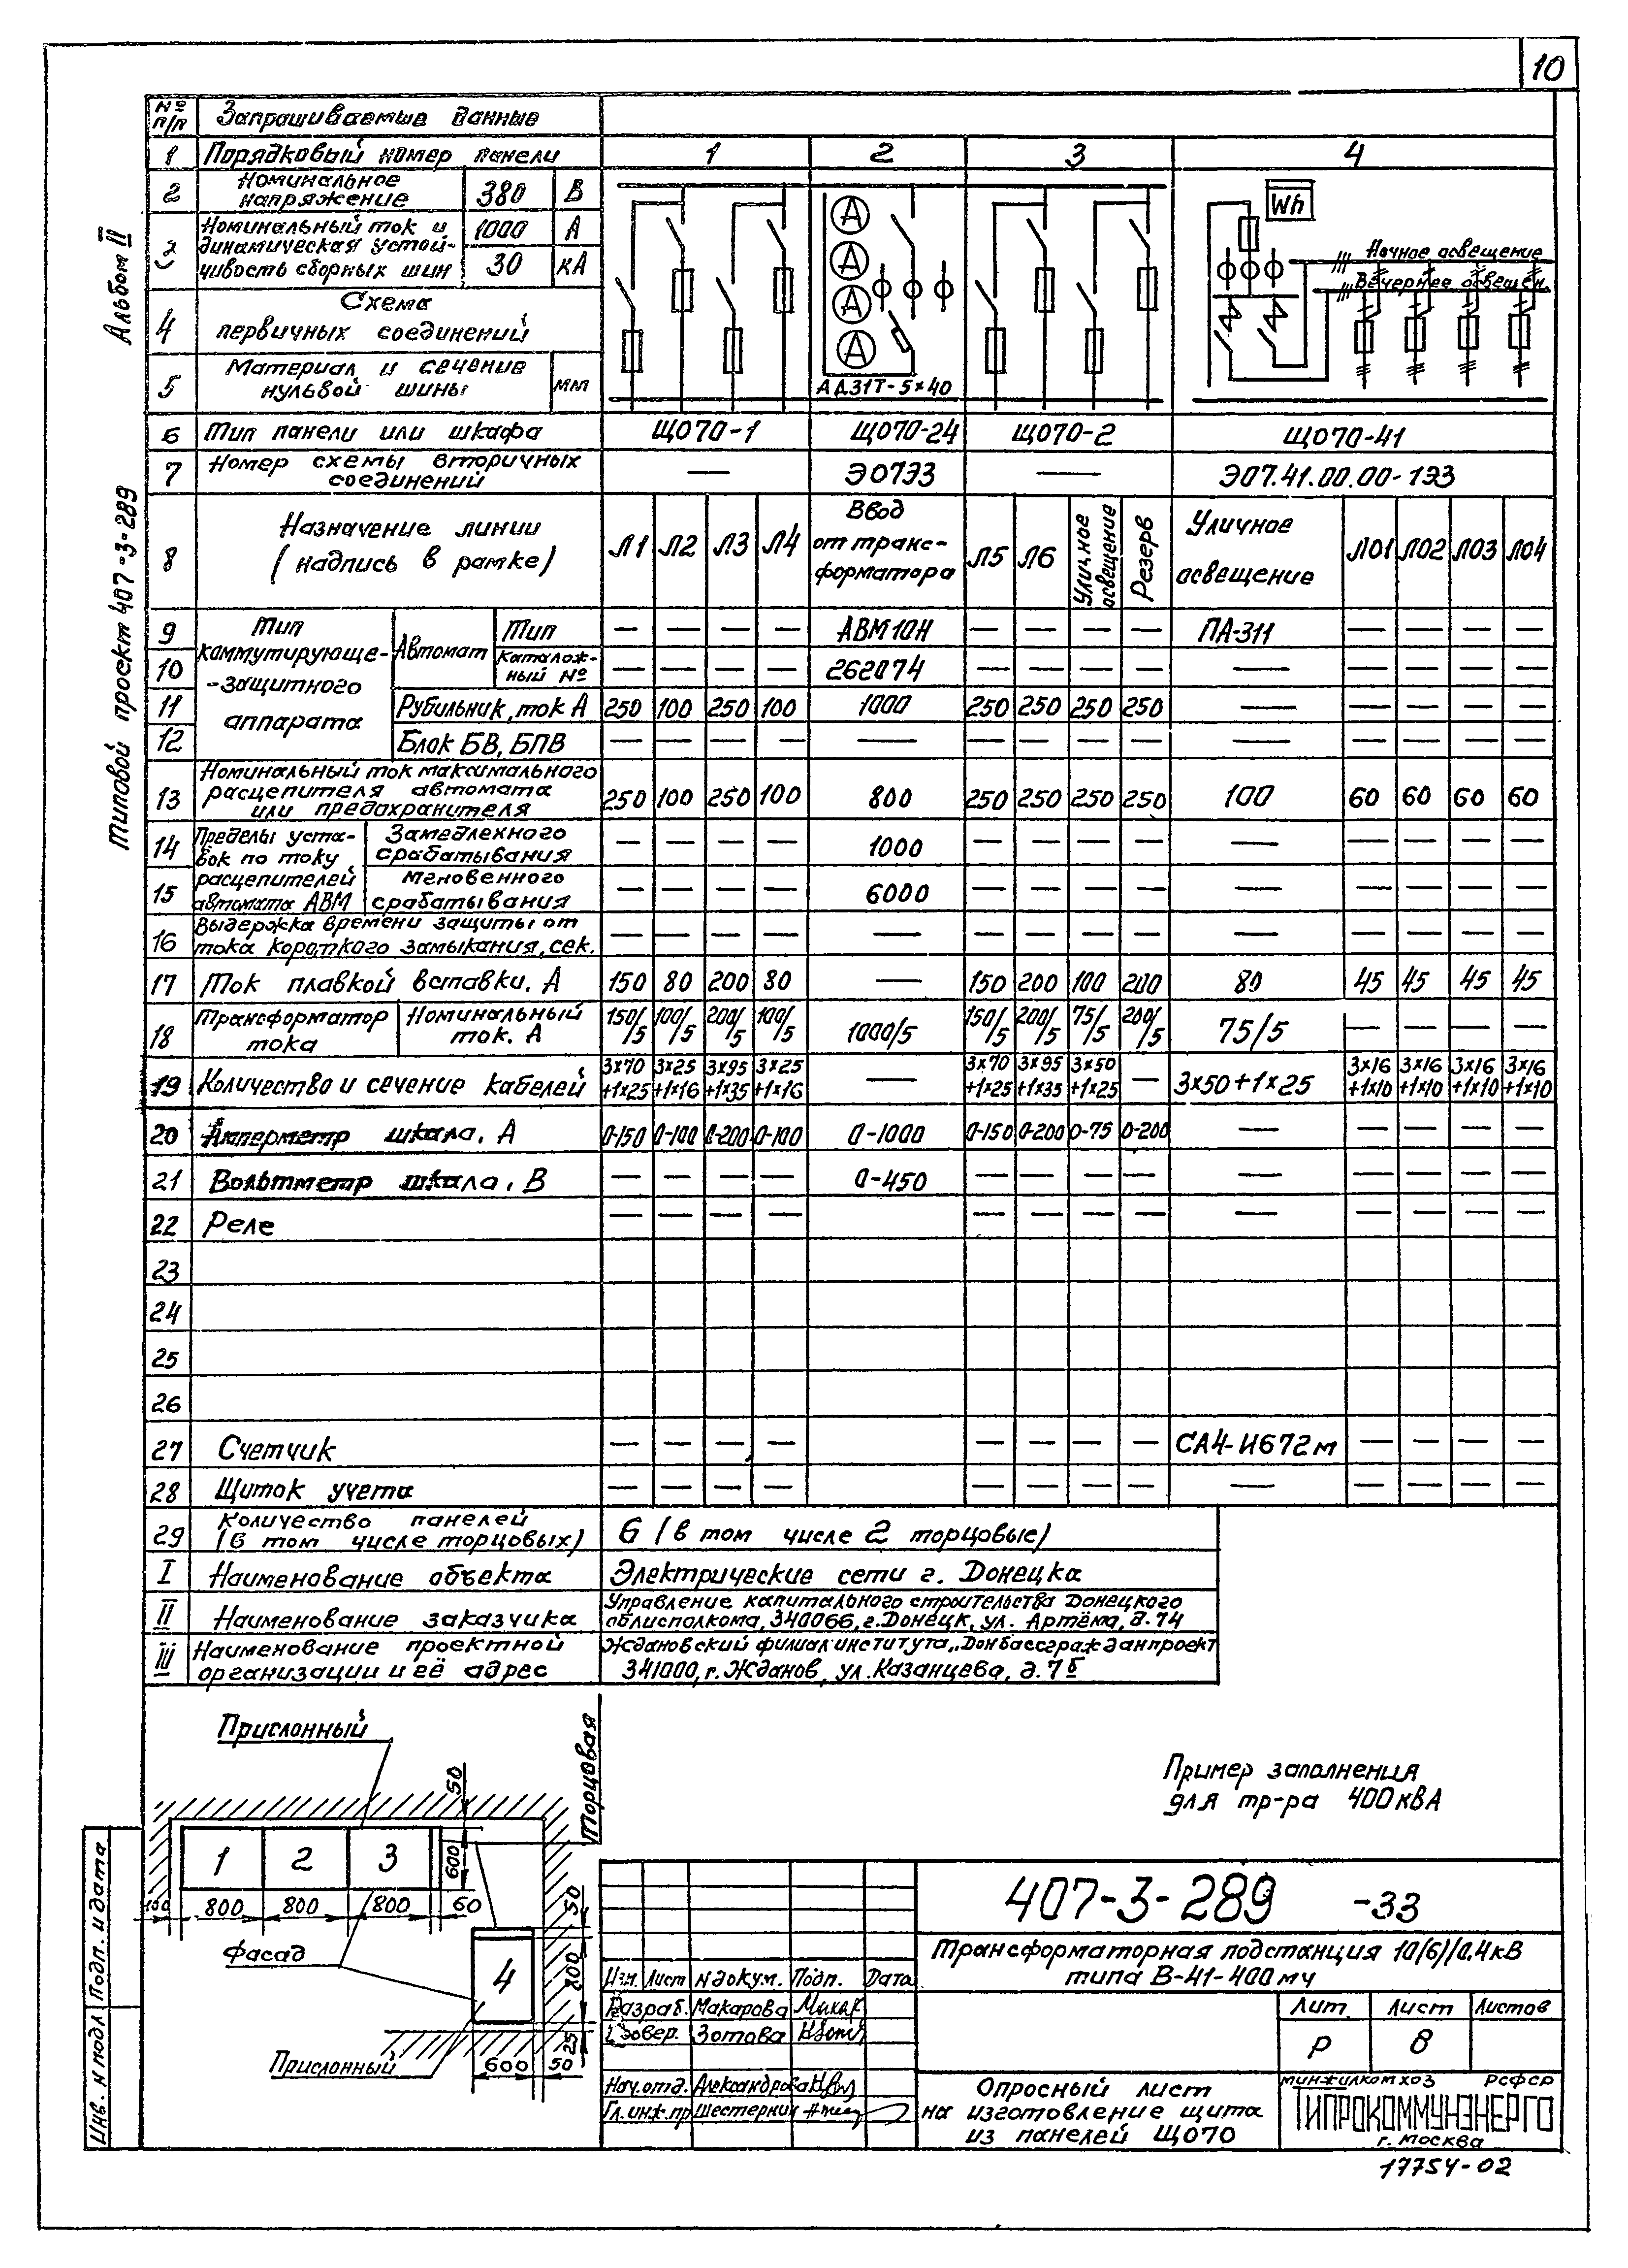 10
Альбом II
Типовой проект 407-3-289
№ п/п Запрашиваемые данные
1 Порядковый номер панели 1 2 3 4
2 Номинальное напряжение 380 В
3 Номинальный ток и динамическая устойчивость сборных шин 1000 А
30 кА
4 Схема первичных соединений
5 Материал и сечение нулевой шины мм
А А А А
АД31Т-5×40
Wh
Ночное освещение
Вечернее освещен.
6 Тип панели или шкафа ЩО70-1 ЩО70-24 ЩО70-2 ЩО70-41
7 Номер схемы вторичных соединений — ЭО7ЭЗ — ЭО7.41.00.00-1ЭЗ
8 Назначение линии (надпись в рамке) Л1 Л2 Л3 Л4 Ввод от трансформатора Л5 Л6 Уличное освещение Резерв Уличное освещение ЛО1 ЛО2 ЛО3 ЛО4
Тип коммутирующе-защитного аппарата
9 Автомат Тип — — — — АВМ10Н — — — — ПА-311 — — — —
10 Каталожный № — — — — 262074 — — — — — — — — —
11 Рубильник, ток А 250 100 250 100 1000 250 250 250 250 — — — — —
12 Блок БВ, БПВ — — — — — — — — — — — — — —
13 Номинальный ток максимального расцепителя автомата или предохранителя 250 100 250 100 800 250 250 250 250 100 60 60 60 60
Пределы уставок по току расцепителей автомата АВМ
14 Замедленного срабатывания — — — — 1000 — — — — — — — — —
15 Мгновенного срабатывания — — — — 6000 — — — — — — — — —
16 Выдержка времени защиты от тока короткого замыкания, сек. — — — — — — — — — — — — — —
17 Ток плавкой вставки, А 150 80 200 80 — 150 200 100 200 80 45 45 45 45
18 Трансформатор тока Номинальный ток. А 150/5 100/5 200/5 100/5 1000/5 150/5 200/5 75/5 200/5 75/5 — — — —
19 Количество и сечение кабелей 3×70+1×25 3×25+1×16 3×95+1×35 3×25+1×16 — 3×70+1×25 3×95+1×35 3×50+1×25 — 3×50+1×25 3×16+1×10 3×16+1×10 3×16+1×10 3×16+1×10
20 Амперметр шкала, А 0-150 0-100 0-200 0-100 0-1000 0-150 0-200 0-75 0-200 — — — — —
21 Вольтметр шкала, В — — — — 0-450 — — — — — — — — —
22 Реле — — — — — — — — — — — — —
23
24
25
26
27 Счетчик — — — — — — — — СА4-И672м — — — —
28 Щиток учета — — — — — — — — — — — — —
29 Количество панелей (в том числе торцовых) 6 (в том числе 2 торцовые)
I Наименование объекта Электрические сети г. Донецка
II Наименование заказчика Управление капитального строительства Донецкого облисполкома, 340066, г. Донецк, ул. Артёма, д. 74
III Наименование проектной организации и её адрес Ждановский филиал института „Донбассгражданпроект
341000, г. Жданов, ул. Казанцева, д. 7б
Прислонный
Торцовая
50
1 2 3
600
100 800 800 800 60
Фасад
4
50
800
25
600 50
Прислонный
Пример заполнения
для тр-ра 400кВА
407-3-289 -ЭЗ
Трансформаторная подстанция 10(6)/0.4кВ
типа В-41-400му
Изм. Лист № докум. Подп. Дата
Разраб. Макарова
Провер. Зотова
Нач.отд. Александрова
Гл.инж.пр Шестернин
Лит. Лист Листов
Р 8
Опросный лист
на изготовление щита
из панелей ЩО70
Минжилкомхоз РСФСР
ГИПРОКОММУНЭНЕРГО
г. Москва
Инв. № подл Подп. и дата
17754-02